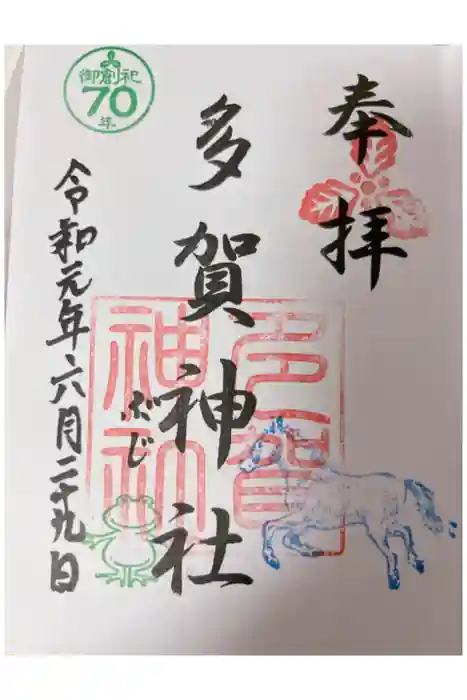 奉拝
多賀神社
多賀
神社
令和元年六月二十九日
御創祀
70
年